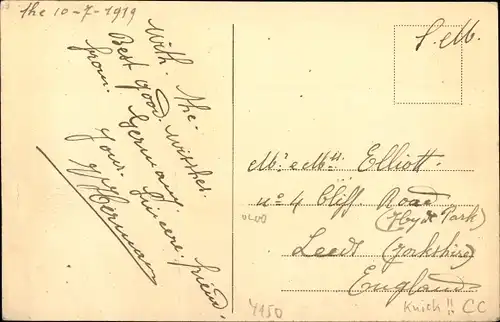 the 10-7-1919
With. the.
Best good. wisshes.
from. Germany.
your. sincere. friend.
W Herman
S. M.
Mr e Mrs. Elliott.
no 4 Cliff Road
(Hyde Park)
Leeds (Yorkshire)
England
0200
4150
Knich !! CC